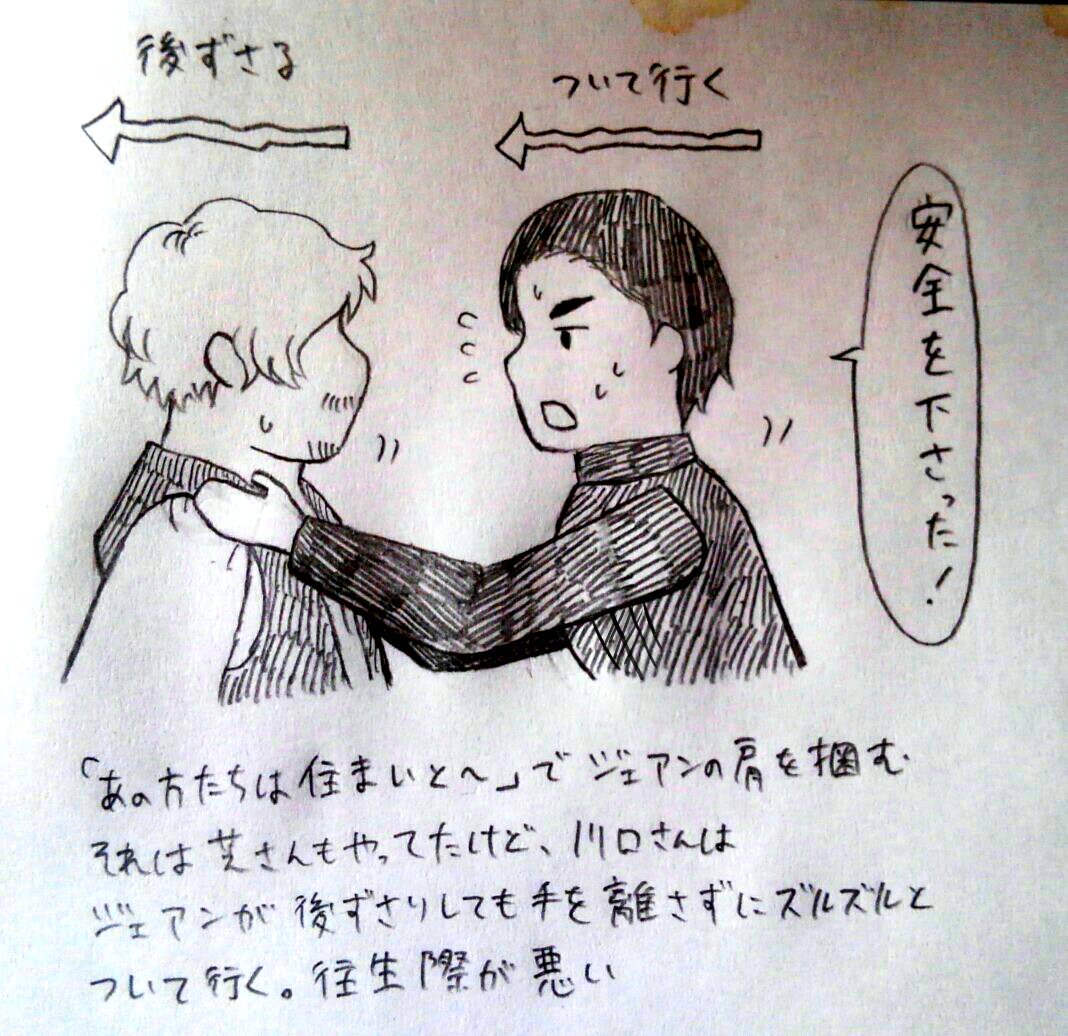 後ずさる
ついて行く
安全を下さった!
「あの方たちは住まいと〜」でジェアンの肩を掴む
それは芝さんもやってたけど、川口さんは
ジェアンが後ずさりしても手を離さずにズルズルと
ついて行く。往生際が悪い